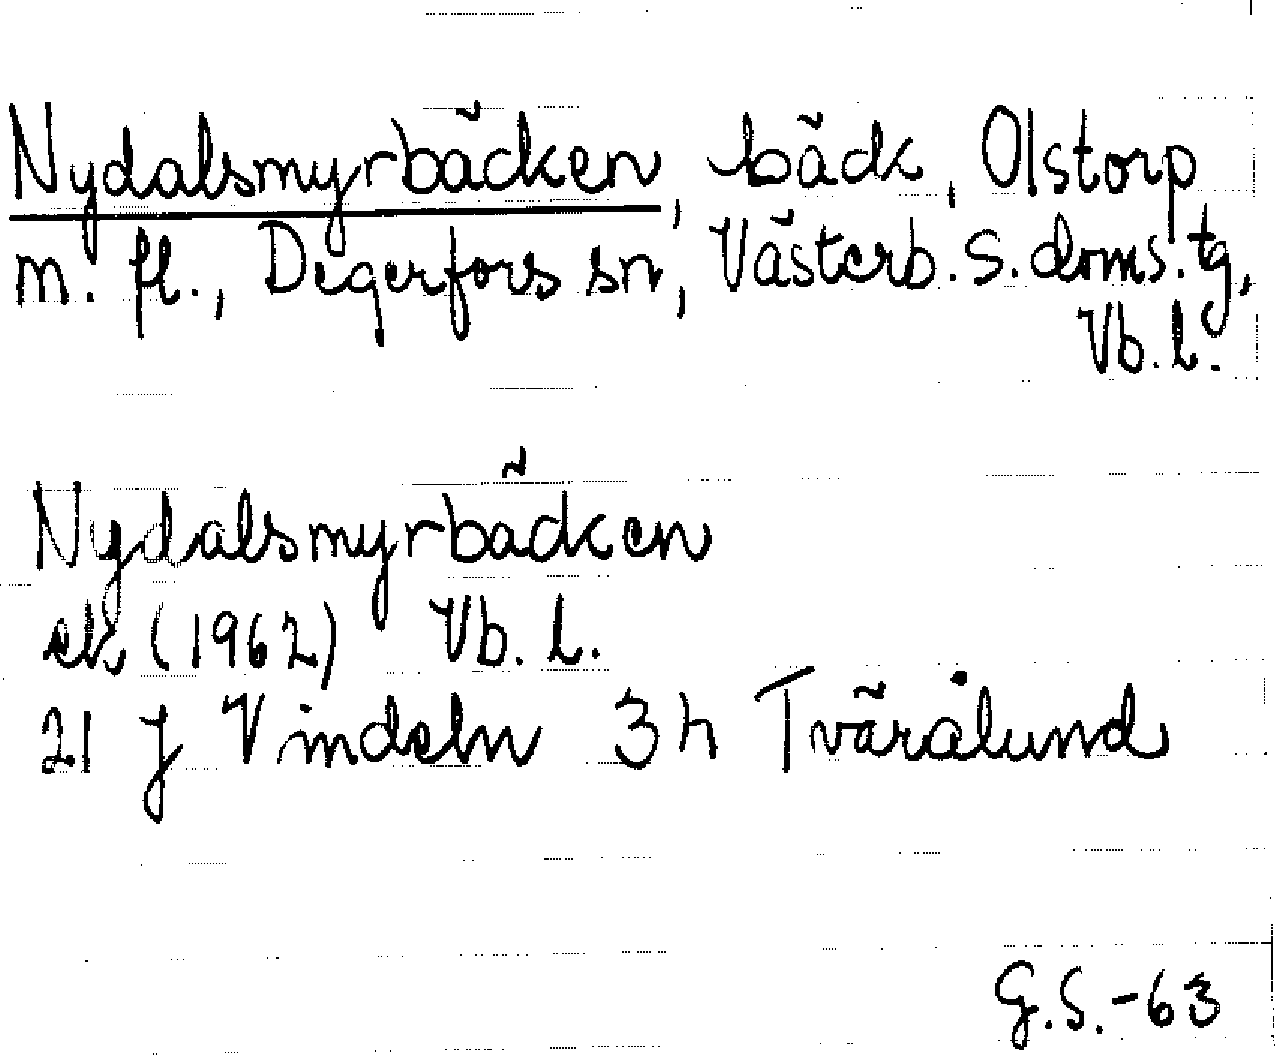 Nydalsmyrbäcken, bäck, Olstorp
m. fl., Degerfors sn, Västerb. S. doms. tg,
Vb. l.
Nydalsmyrbäcken
ek (1962) Vb. l.
21 J Vindeln 3 h Tvärålund
G.S.-63